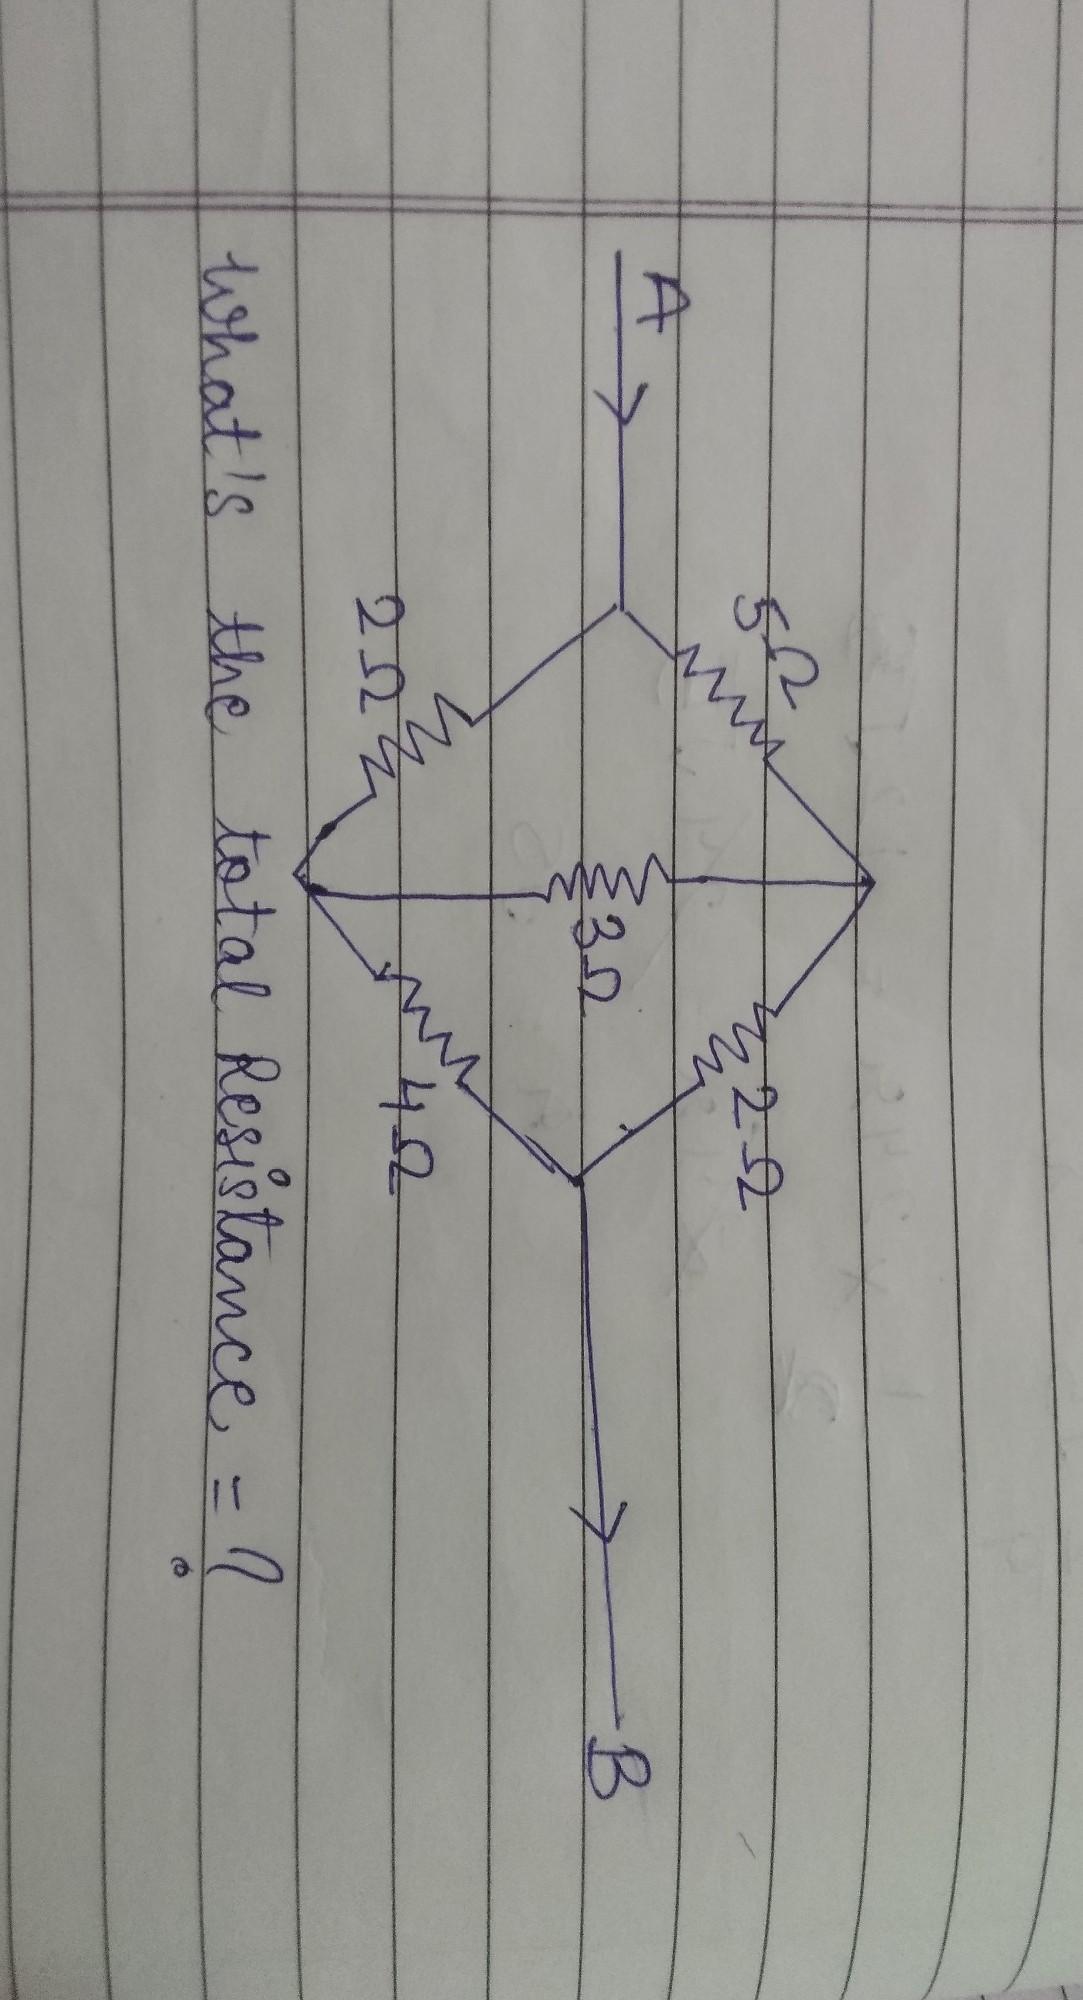 5Ω
2Ω
A
3Ω
B
2Ω
4Ω
What's the total Resistance = ?